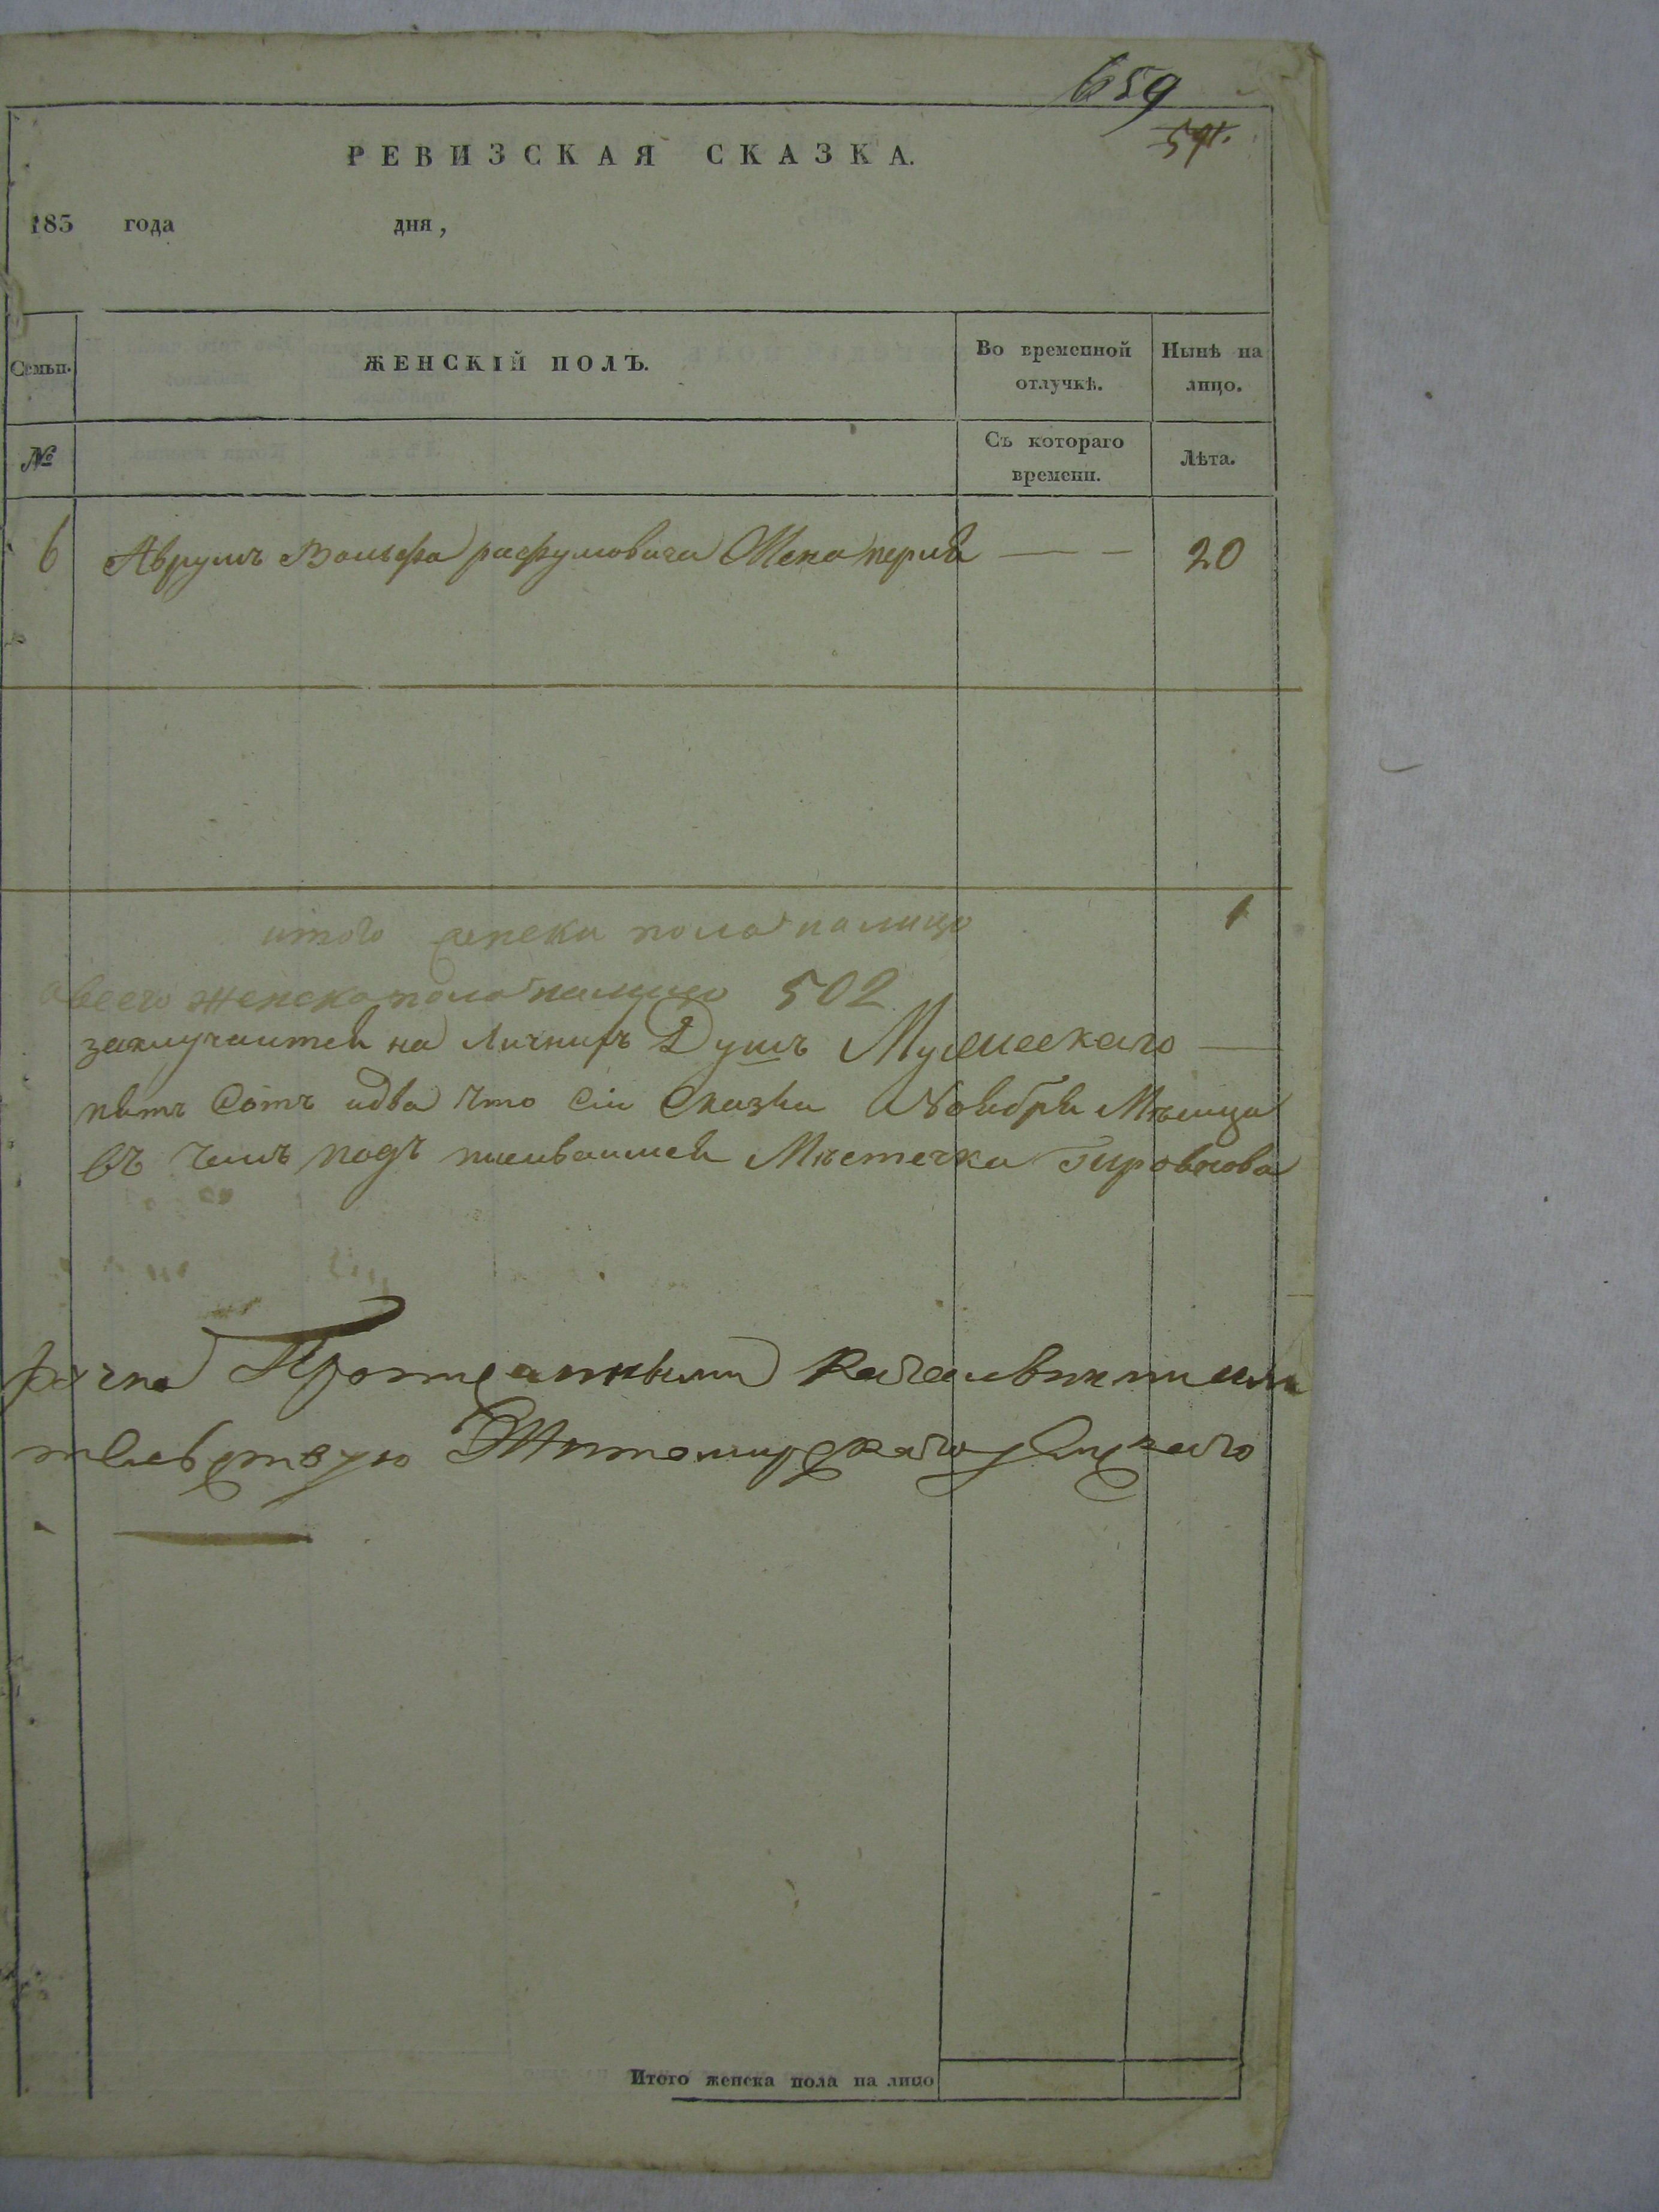 659
591.
РЕВИЗСКАЯ СКАЗКА.
185 года дня,
Семьи. ЖЕНСКІЙ ПОЛЪ. Во временной отлучкѣ. Нынѣ на лицо.
№ Съ котораго времени. Лѣта.
6 Аврумъ Вольфа рафумовича Жена перля — — 20
итого женска пола налицо 1
авсего женска пола налицо 502
заключаитей на Личнихъ Душъ Мужескаго —
пять Сотъ идва Что Сіи Сказки Ноября Мѣсица
въ Чемъ подъ писиваимся Мѣстечка
Житомирскаго
Итого женска пола на лицо